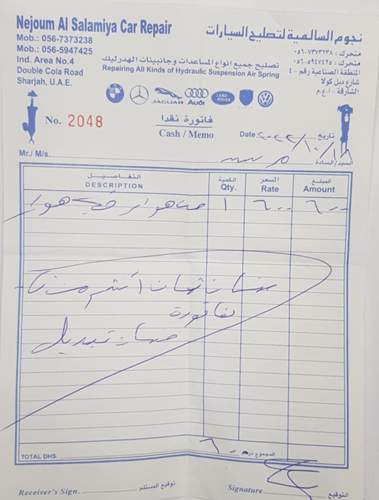 Nejoum Al Salamiya Car Repair
Mob.: 056-7373238
Mob.: 056-5947425
Ind. Area No.4
Double Cola Road
Sharjah, U.A.E.
نجوم السالمية لتصليح السيارات
متحرك: ٠٥٦-٧٣٧٣٢٣٨
متحرك: ٠٥٦-٥٩٤٧٤٢٥
المنطقة الصناعية رقم - ٤
شارع دبل كولا
الشارقة، ا.ع.م
تصليح جميع انواع المساعدات وجانبينات الهدرليك
Repairing All Kinds of Hydraulic Suspension Air Spring
JAGUAR
Audi
No. 2048
فاتورة نقدا
Cash / Memo
Date تاريخ
Mr./ M/s. السيد/السادة
التفاصيل
DESCRIPTION
الكمية
Qty.
السعر
Rate
المبلغ
Amount
١ ٦٠٠ ٦٠٠
ضمان ثمان اشهر من
فاتورة
ضمان تبديل
TOTAL DHS. المجموع درهم ٦٠٠
Receiver's Sign. توقيع المستلم
Signature التوقيع